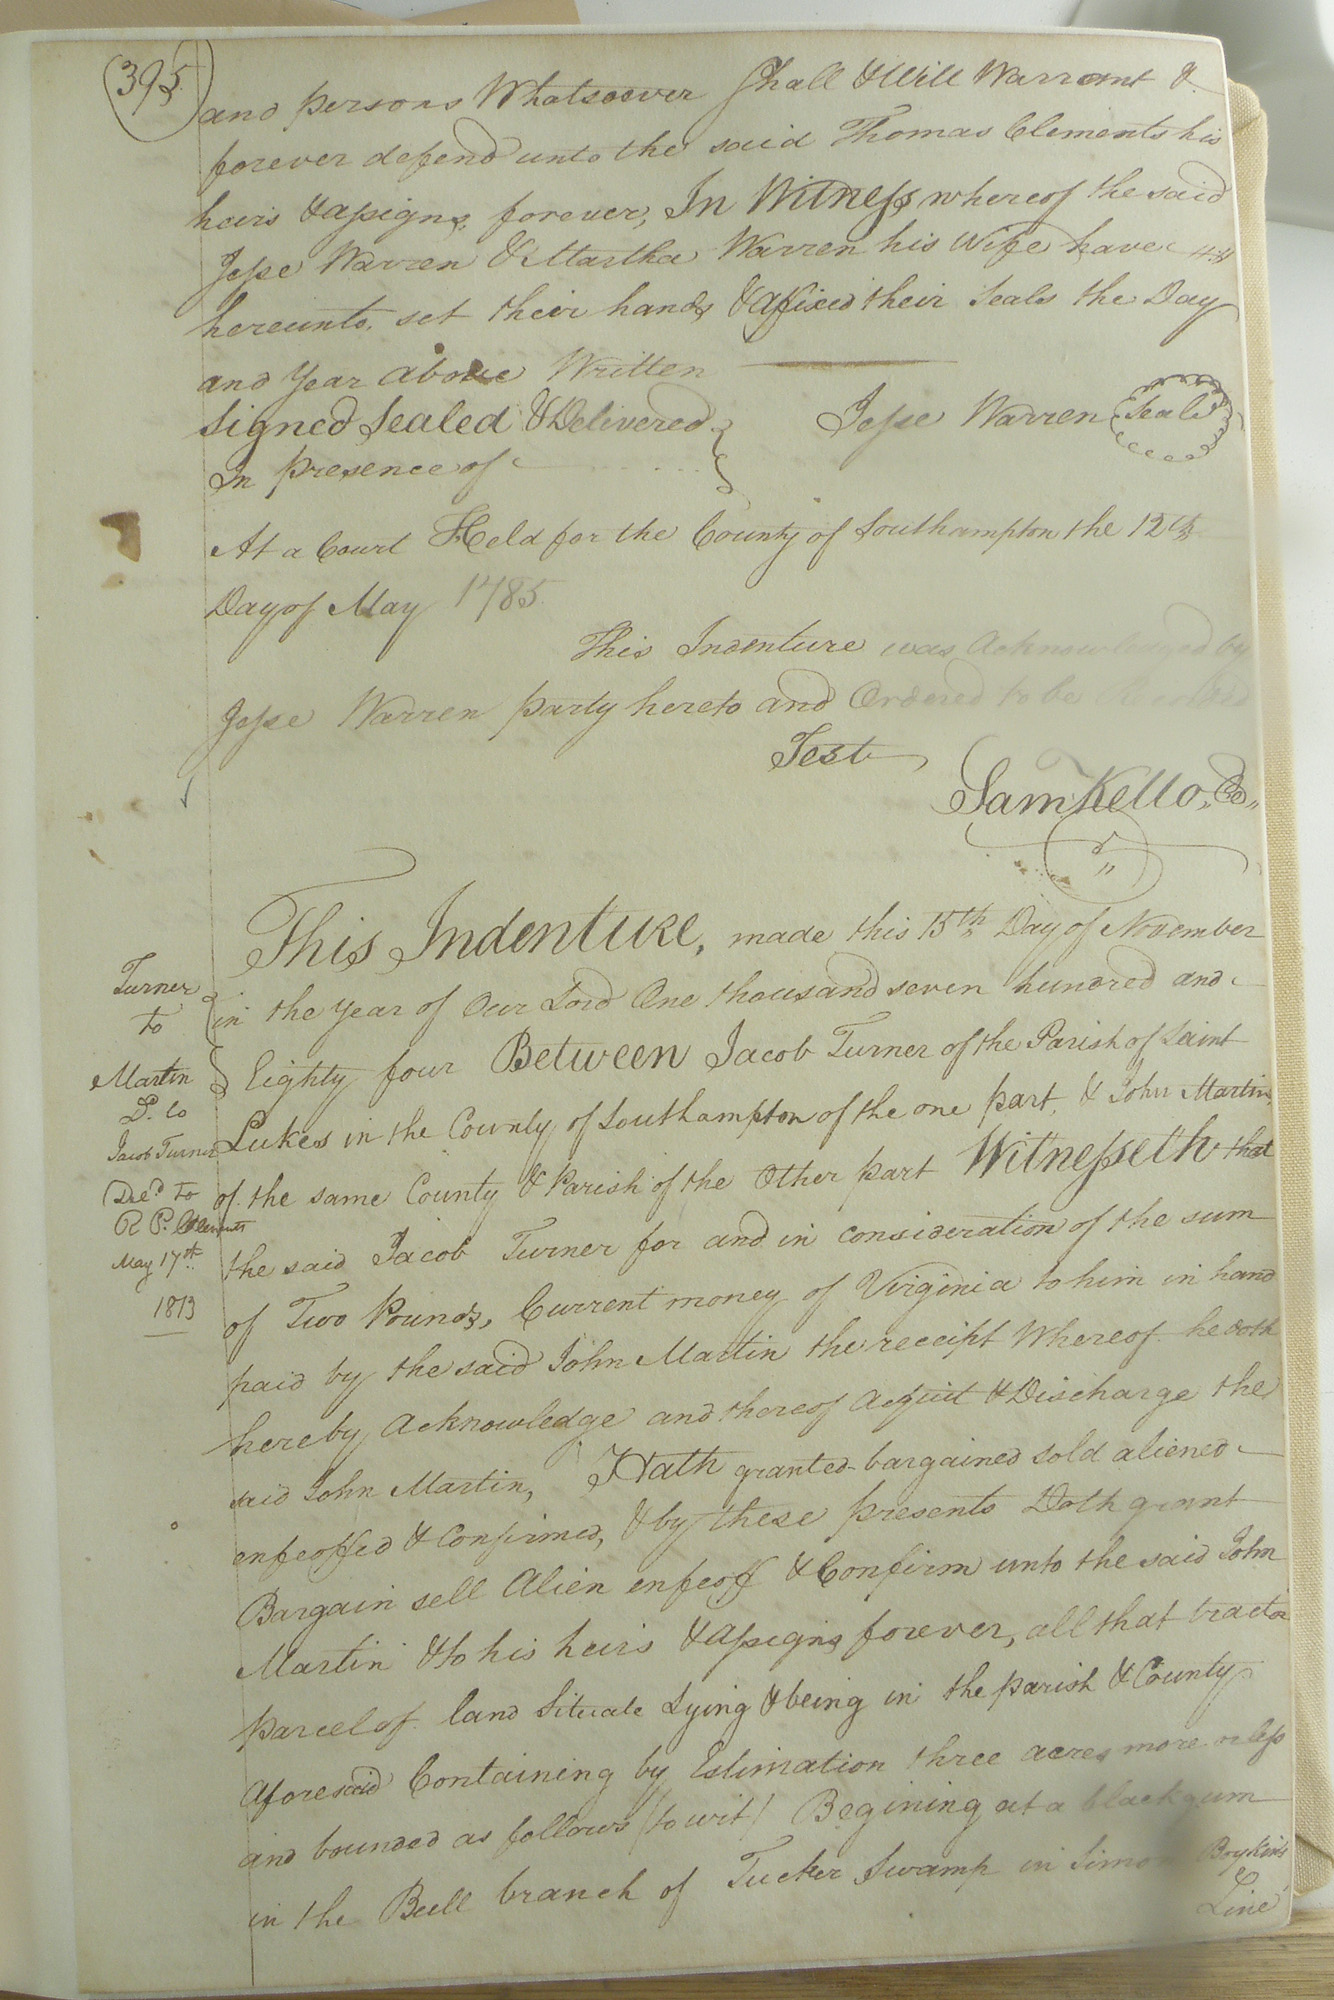 395
and persons Whatsoever Shall & Will Warrant &
forever defend unto the said Thomas Clements his
heirs & assigns forever, In Witness whereof the said
Jesse Warren & Martha Warren his Wife have
hereunto set their hands & Afixed their Seals the Day
and Year above Written
Signed Sealed & Delivered
In presence of
Jesse Warren Seal
At a Court Held for the County of Southampton the 12th
Day of May 1785
This Indenture was Acknowledged by
Jesse Warren party hereto and Ordered to be Recorded
Test
Sam Kello, Co
This Indenture, made this 15th Day of November
in the Year of Our Lord One thousand seven hundred and
Eighty four Between Jacob Turner of the Parish of Saint
Lukes in the County of Southampton of the one part, & John Martin
of the same County & Parish of the Other part Witnesseth that
the said Jacob Turner for and in consideration of the sum
of Two Pounds, Current money of Virginia to him in hand
paid by the said John Martin the receipt Whereof he doth
hereby Acknowledge and thereof Acquit & Discharge the
said John Martin, Hath granted bargained sold aliened
enfeoffed & Confirmed, & by these presents Doth grant
Bargain sell Alien enfeoff & Confirm unto the said John
Martin & to his heirs & Assigns forever, all that tract or
parcel of land Situate Lying & being in the parish & County
Aforesaid Containing by Estimation three acres more or less
and bounded as follows (to wit) Begining at a black gum
in the Beel branch of Tucker Swamp in Simon Boykin's
Line
Turner
to
Martin
D. to
Jacob Turner
Dec'd to
R P. Clements
May 17th
1813